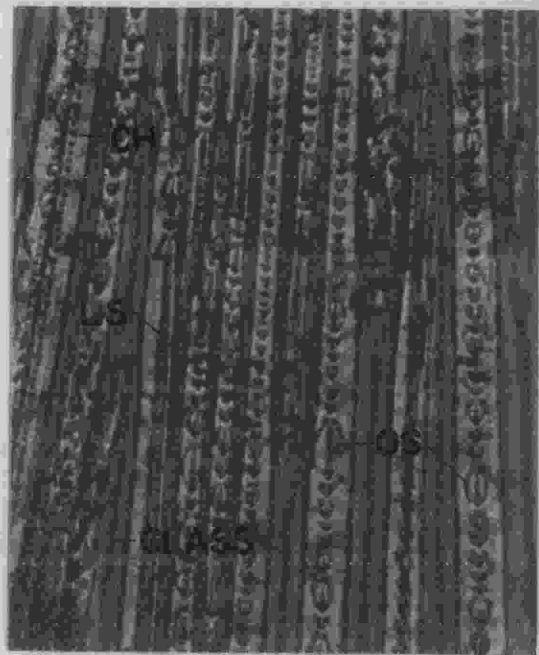 CH
LS
OS
GLASS